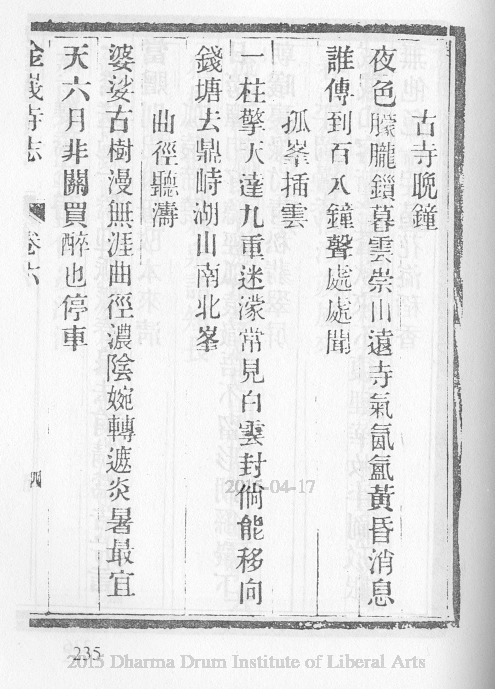 古寺晩鐘
夜色朦朧鎖暮雲崇山遠寺氣氤氳黃昏消息
誰傳到百八鐘聲處處聞
孤峯插雲
一柱擎天達九重迷濛常見白雲封倘能移向
錢塘去鼎峙湖山南北峯
曲徑聽濤
婆娑古樹漫無涯曲徑濃陰婉轉遮炎暑最宜
天六月非關買醉也停車
志 卷六 四
2015-04-17
235
2015 Dharma Drum Institute of Liberal Arts